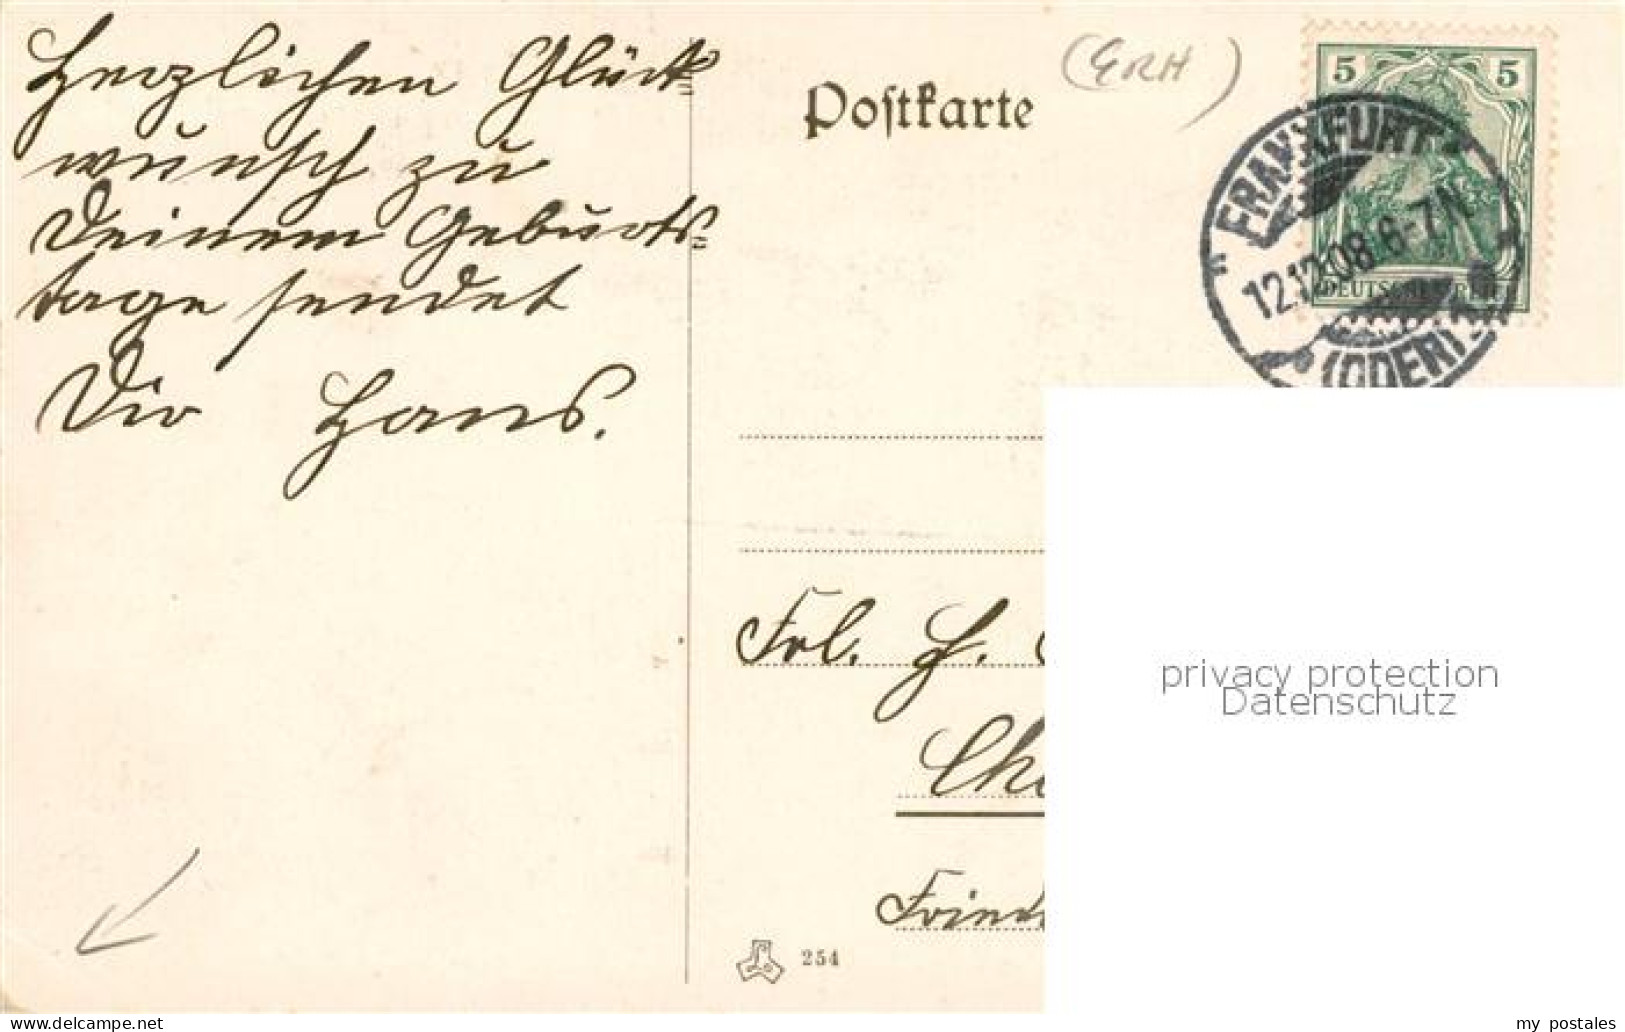 Herzlichen Glück=
wunsch zu
Deinem Geburts=
tage sendet
Dir Hans.
Postkarte
(GRH)
5 5
DEUTSCHES REICH
FRANKFURT
12.12.08.6-7N.
(ODER)
Frl. H.
privacy protection
Datenschutz
254
my postales
www.delcampe.net